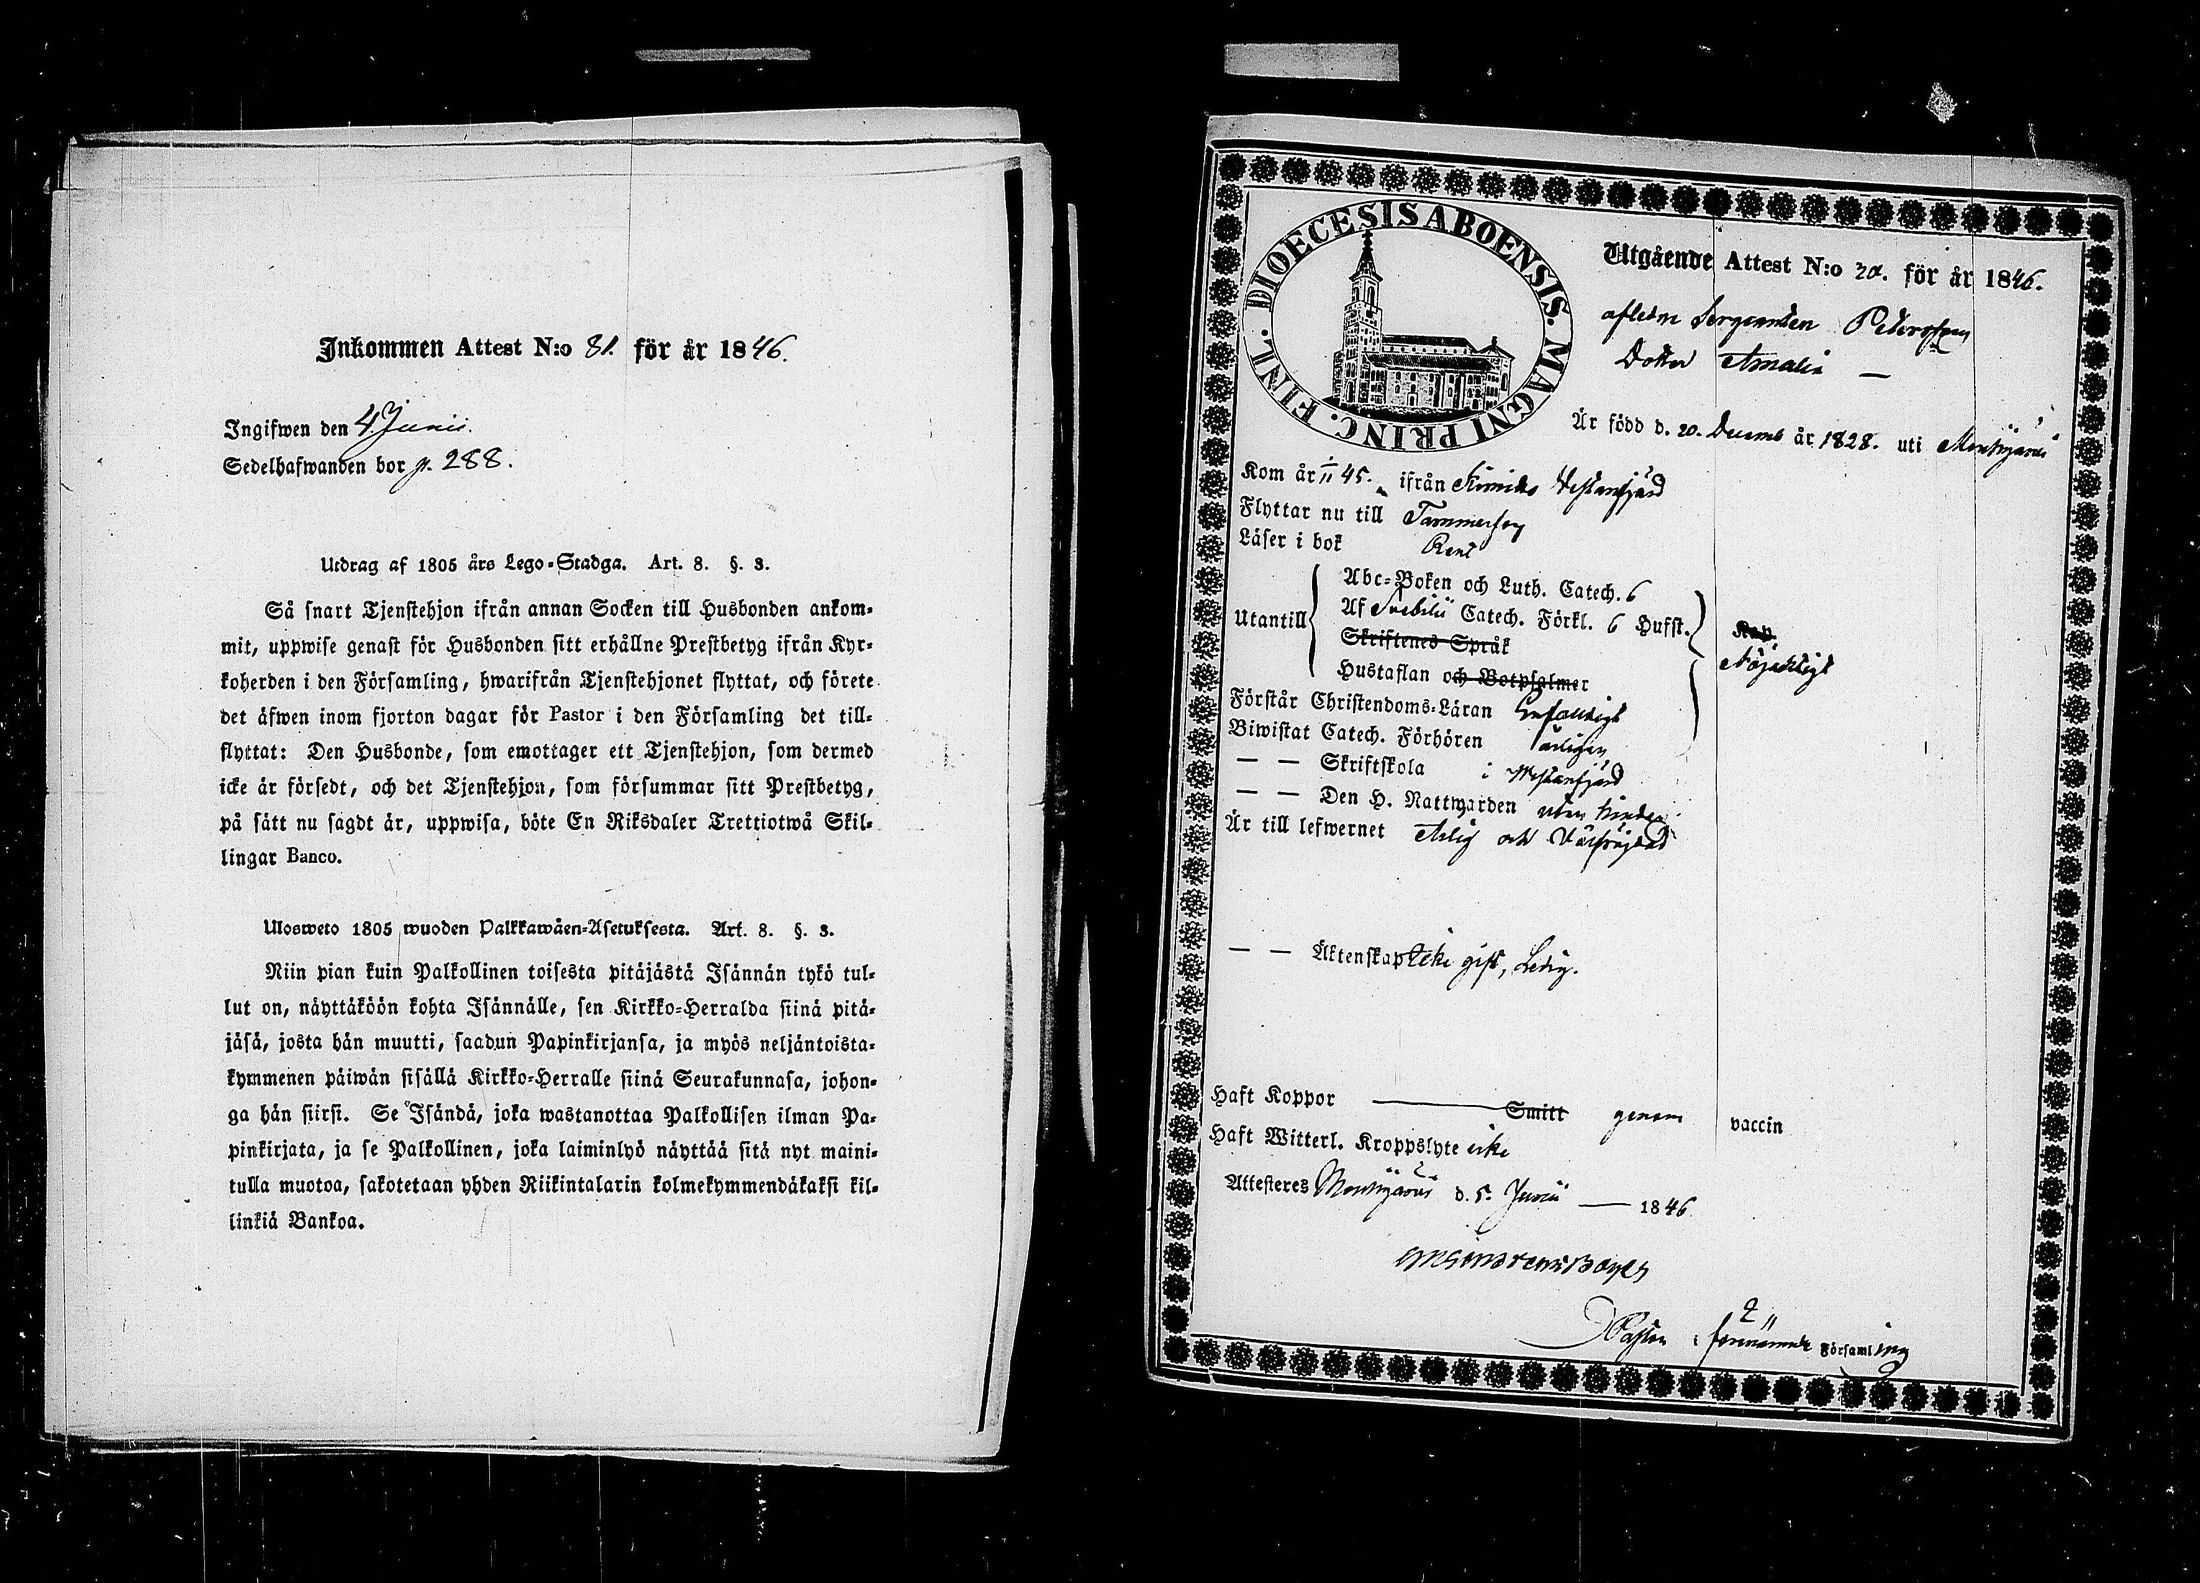 Inkommen Attest N:o 81. för år 1846.
Ingifwen den 4. Junii.
Sedelhafwanden bor p. 288.
Utdrag af 1805 års Lego-Stadga. Art. 8. §. 3.
Så snart Tjenstehjon ifrån annan Socken till Husbonden ankom-
mit, uppwise genast för Husbonden sitt erhållne Prestbetyg ifrån Kyr-
koherden i den Församling, hwarifrån Tjenstehjonet flyttat, och förete
det äfwen inom fjorton dagar för Pastor i den Församling det till-
flyttat: Den Husbonde, som emottager ett Tjenstehjon, som dermed
icke är försedt, och det Tjenstehjon, som försummar sitt Prestbetyg,
på sätt nu sagdt är, uppwisa, böte En Riksdaler Trettiotwå Skil-
lingar Banco.
Ulosweto 1805 wuoden Palkkawäen-Asetuksesta. Art. 8. §. 3.
Niin pian kuin Palkollinen toisesta pitäjästä Isännän tykö tul-
lut on, näyttäköön kohta Isännälle, sen Kirkko-Herralda siinä pitä-
jäsä, josta hän muutti, saadun Papinkirjansa, ja myös neljäntoista-
kymmenen päiwän sisällä Kirkko-Herralle siinä Seurakunnasa, johon-
ga hän siirsi. Se Isändä, joka wastanottaa Palkollisen ilman Pa-
pinkirjata, ja se Palkollinen, joka laiminlyö näyttää sitä nyt maini-
tulla muotoa, sakotetaan yhden Riikintalarin kolmekymmendäkaksi kil-
linkiä Bankoa.
DIOECESIS ABOENSIS. MAGNI PRINC. FINL.
Utgående Attest N:o 20. för år 1846.
afledne Sergeanten Petersons
Dotter Amalia —
Är född d. 20. Decemb år 1828. uti Mäntyjärvi
Kom år 45. ifrån Kimito Westanfjärd
Flyttar nu till Tammerfors
Läser i bok Rent
Utantill
Abc-Boken och Luth. Catech. 6
Af Svebilii Catech. Förkl. 6 Hufst.
Skriftenes Språk
Hustaflan och Botpsalmer
Kap.
Nöjaktigt
Förstår Christendoms-Läran Enfaldigt
Biwistat Catech. Förhören årligen
— — Skriftskola i Westanfjärd
— — Den H. Nattwarden utan hinder
Är till lefwernet Ärlig och Välfrägdad
— — Äktenskap icke gift, Ledig.
Haft Koppor — Smitt genom vaccin
Haft Witterl. Kroppslyte icke
Attesteres d. 5. Junii — 1846
Pastor i församling